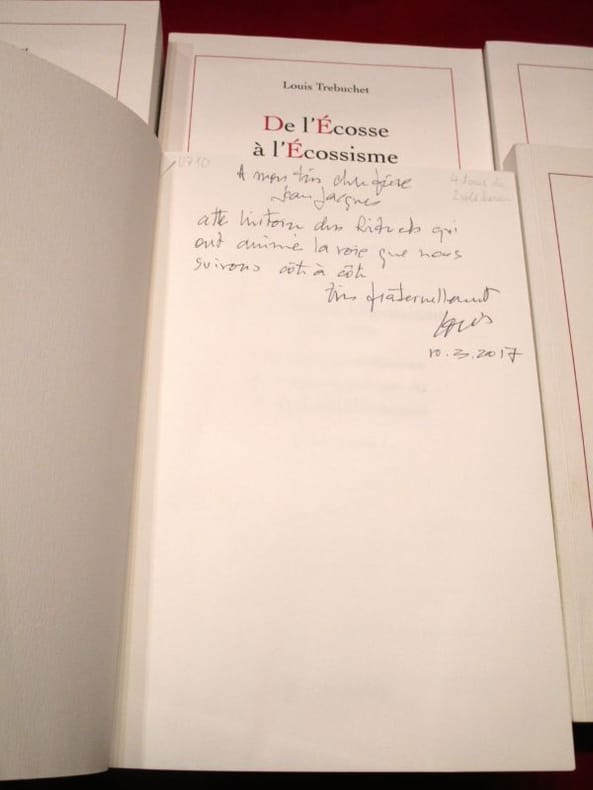 Louis Trebuchet
De l'Écosse
à l'Écossisme
A mon très cher frère
Jean Jacques
cette histoire des Rituels qui
ont animé la voie que nous
suivons côte à côte
très fraternellement
Louis
10.3.2017
4 tomes